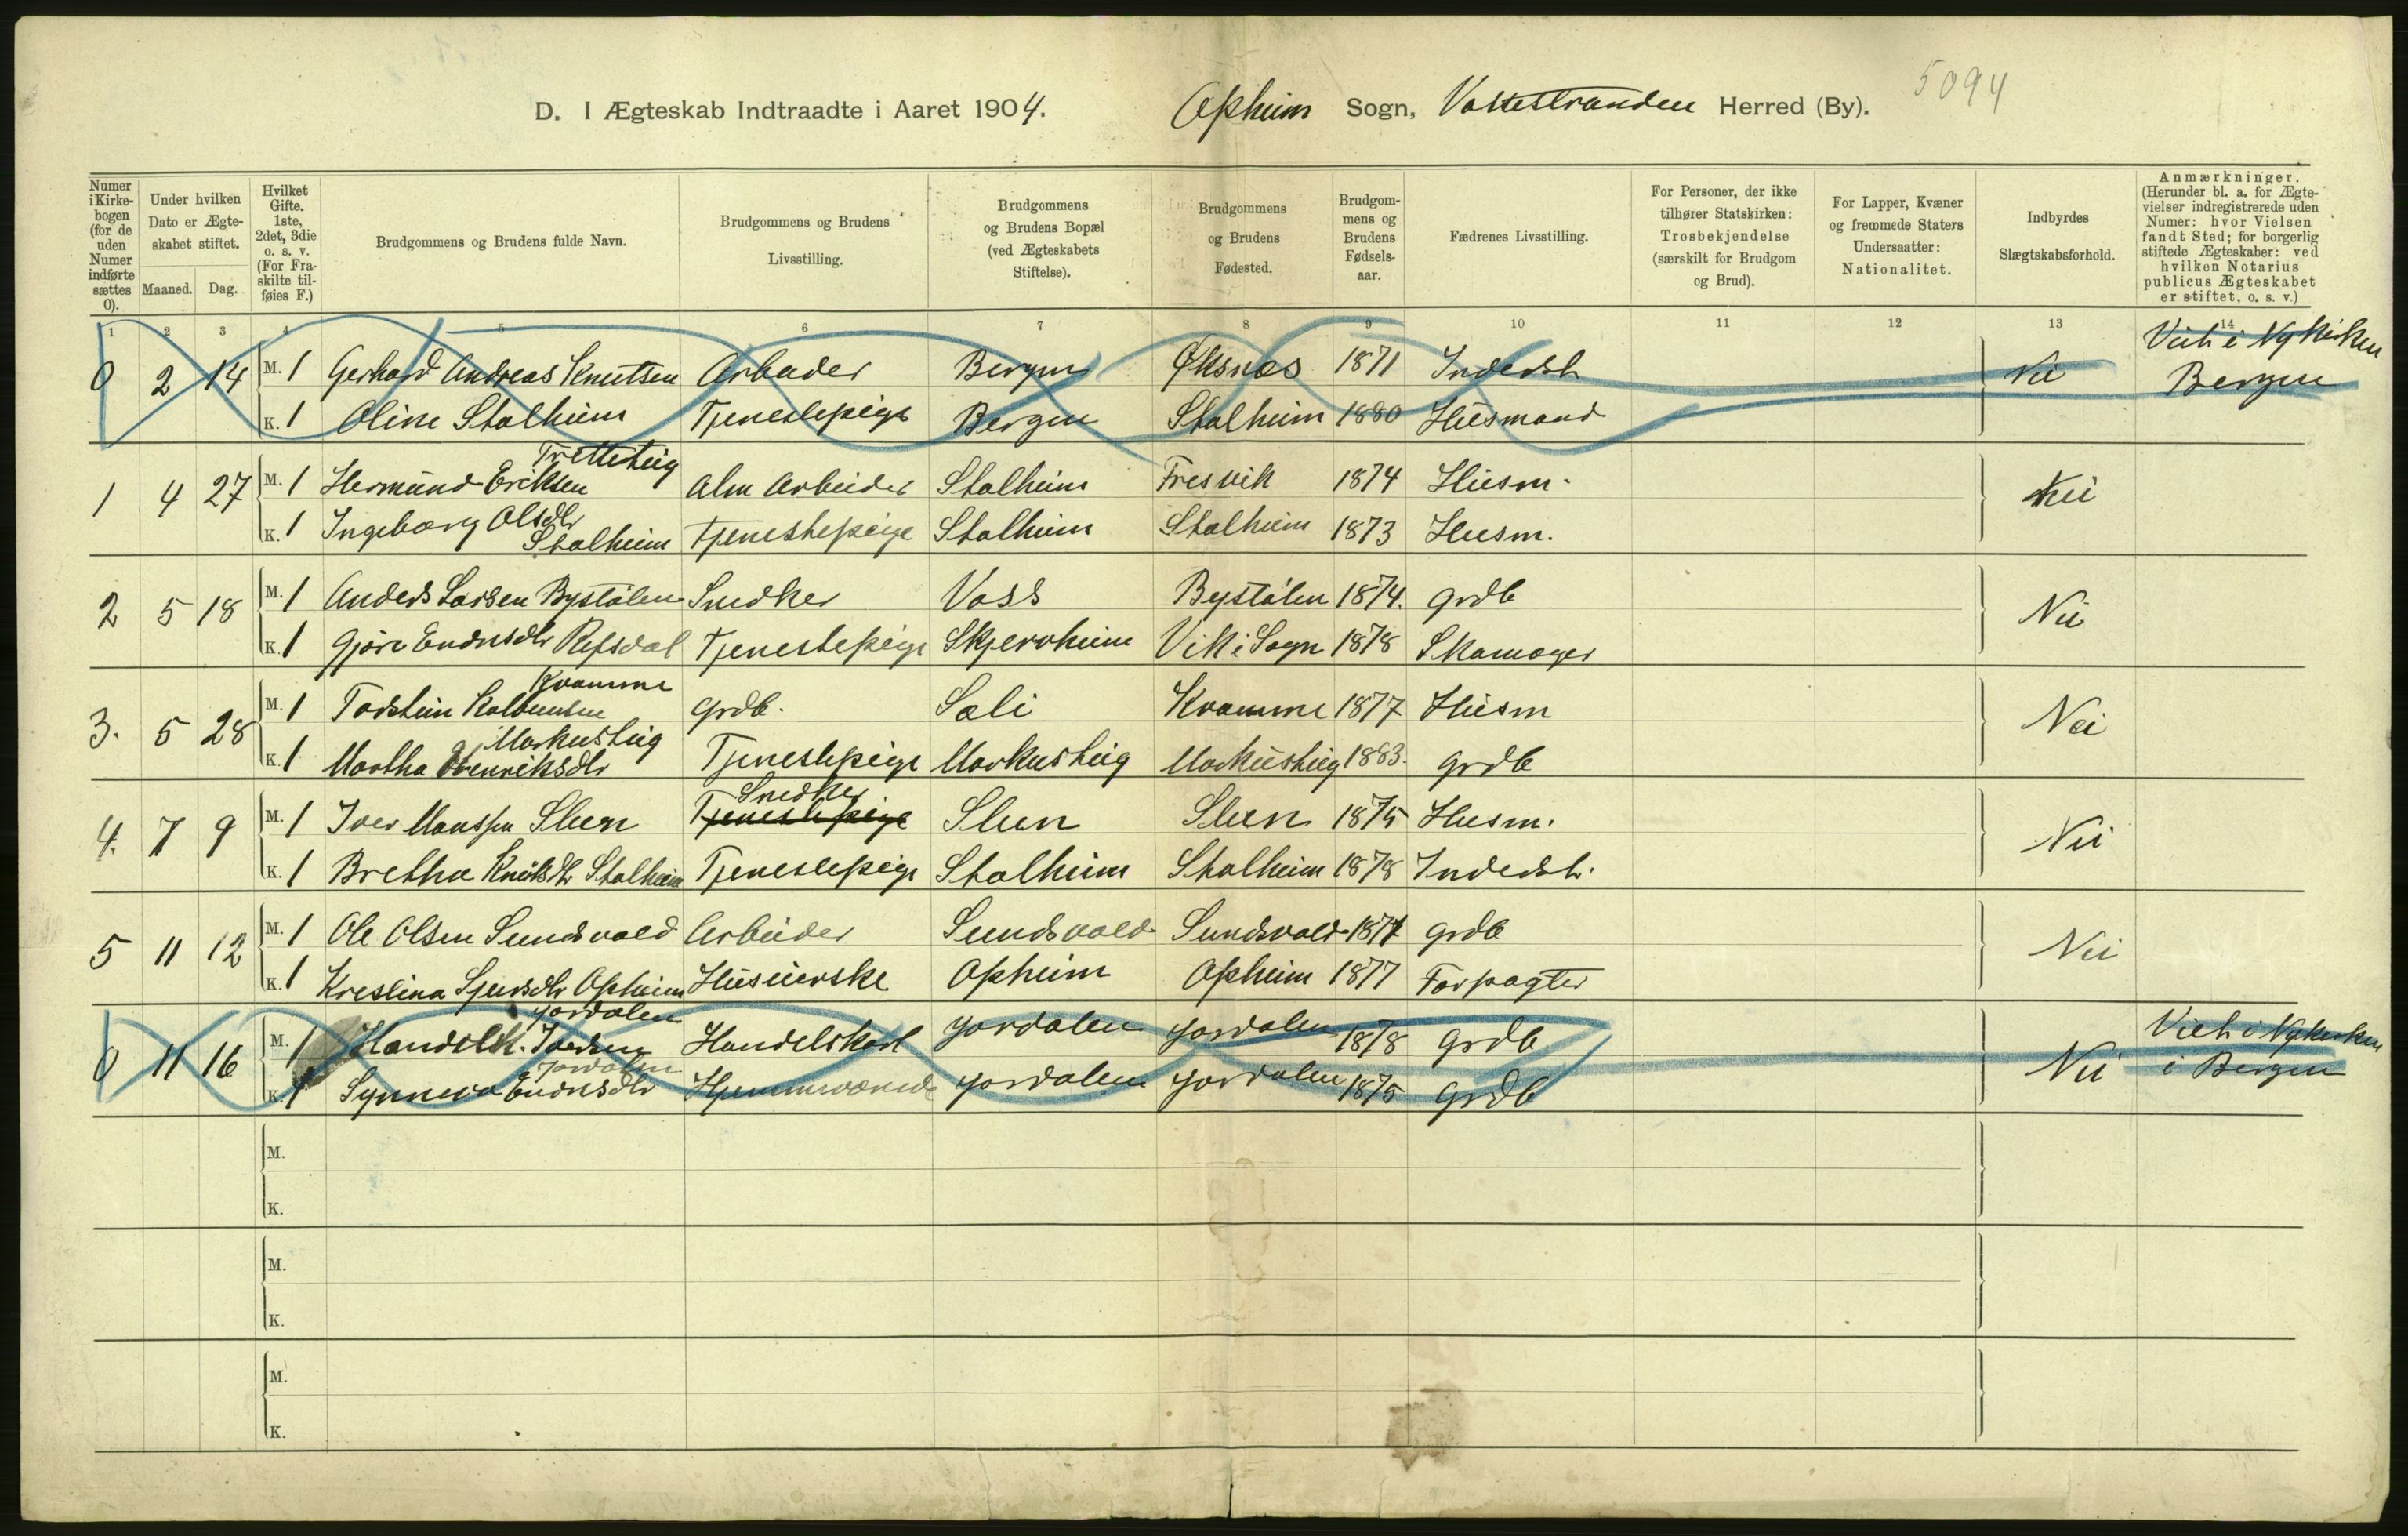 5094
D. I Ægteskab Indtraadte i Aaret 1904. Opheim Sogn, Vossestranden Herred (By).
Numer i Kirkebogen (for de uden Numer indførte sættes 0). | Under hvilken Dato er Ægteskabet stiftet. Maaned. Dag. | Hvilket Gifte. 1ste, 2det, 3die o. s. v. (For Fraskilte tilføies F.) | Brudgommens og Brudens fulde Navn. | Brudgommens og Brudens Livsstilling. | Brudgommens og Brudens Bopæl (ved Ægteskabets Stiftelse). | Brudgommens og Brudens Fødested. | Brudgommens og Brudens Fødselsaar. | Fædrenes Livsstilling. | For Personer, der ikke tilhører Statskirken: Trosbekjendelse (særskilt for Brudgom og Brud). | For Lapper, Kvæner og fremmede Staters Undersaatter: Nationalitet. | Indbyrdes Slægtskabsforhold. | Anmærkninger. (Herunder bl. a. for Ægtevielser indregistrerede uden Numer: hvor Vielsen fandt Sted; for borgerlig stiftede Ægteskaber: ved hvilken Notarius publicus Ægteskabet er stiftet, o. s. v.)
1 2 3 4 5 6 7 8 9 10 11 12 13 14
0 2 14 M. 1 Gerhard Andreas Knutsen Arbeider Bergen Øksnæs 1871 Inderst Nei Viet i Nykirken Bergen
K. 1 Oline Stalheim Tjenestepige Bergen Stalheim 1880 Husmand
1 4 27 M. 1 Hermund Eriksen Tretteteig Alm Arbeider Stalheim Fresvik 1874 Husm. Nei
K. 1 Ingeborg Olsdtr Stalheim Tjenestepige Stalheim Stalheim 1873 Husm.
2 5 18 M. 1 Anders Larsen Bystølen Snedker Voss Bystølen 1874. Grdb Nei
K. 1 Gjøre Endresdtr Refsdal Tjenestepige Skjerveheim Vik i Sogn 1878 Skomager
3. 5 28 M. 1 Torstein Kolbeinsen Kvamme Grdb. Sæli Kvamme 1877 Husm Nei
K. 1 Martha Henriksdtr Markusteig Tjenestepige Markusteig Markusteig 1883. Grdb
4. 7 9 M. 1 Iver Monssen Sleen Tjenestepige Snedker Sleen Sleen 1875 Husm. Nei
K. 1 Bretha Knutsdtr Stalheim Tjenestepige Stalheim Stalheim 1878 Inderst.
5 11 12 M. 1 Ole Olsen Sundsvold Arbeider Sundsvold Sundsvold 1877 Grdb Nei
K. 1 Kristina Sjursdtr Opheim Husierske Opheim Opheim 1877 Forpagter
0 11 16 M. 1 Iversen Jordalen Handelskarl Jordalen Jordalen 1878 Grdb Nei Viet i Nykirken i Bergen
K. 1 Synneva Endresdtr Jordalen Hjemmeværende Jordalen Jordalen 1875 Grdb
M.
K.
M.
K.
M.
K.